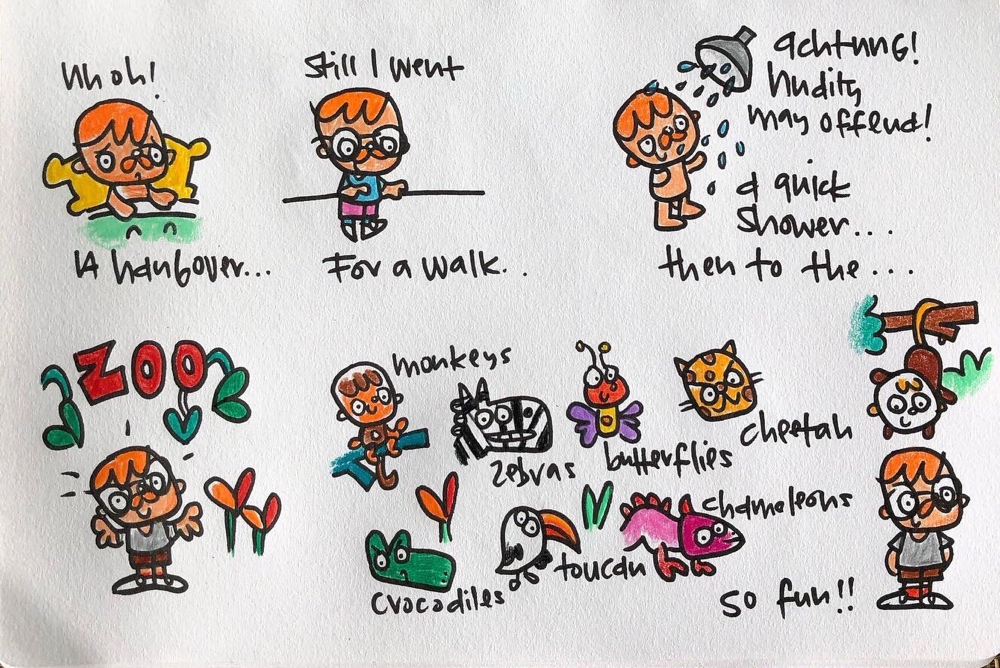 Uh oh!
A hangover...
Still I went
For a walk..
achtung!
nudity
may offend!
a quick
shower...
then to the...
ZOO
monkeys
zebras
butterflies
cheetah
crocodiles
toucan
chameleons
so fun!!